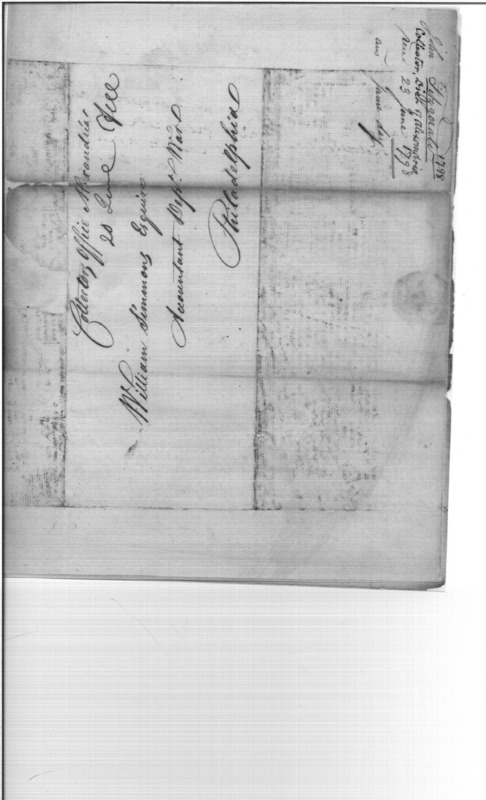 Collectors Office Alexandria
20 June Free
William Simmons Esquire
Accountant Dept. War
Philadelphia
John Fitzgerald 1798
Collector, Dist. of Alexandria
23 June 1798
same day